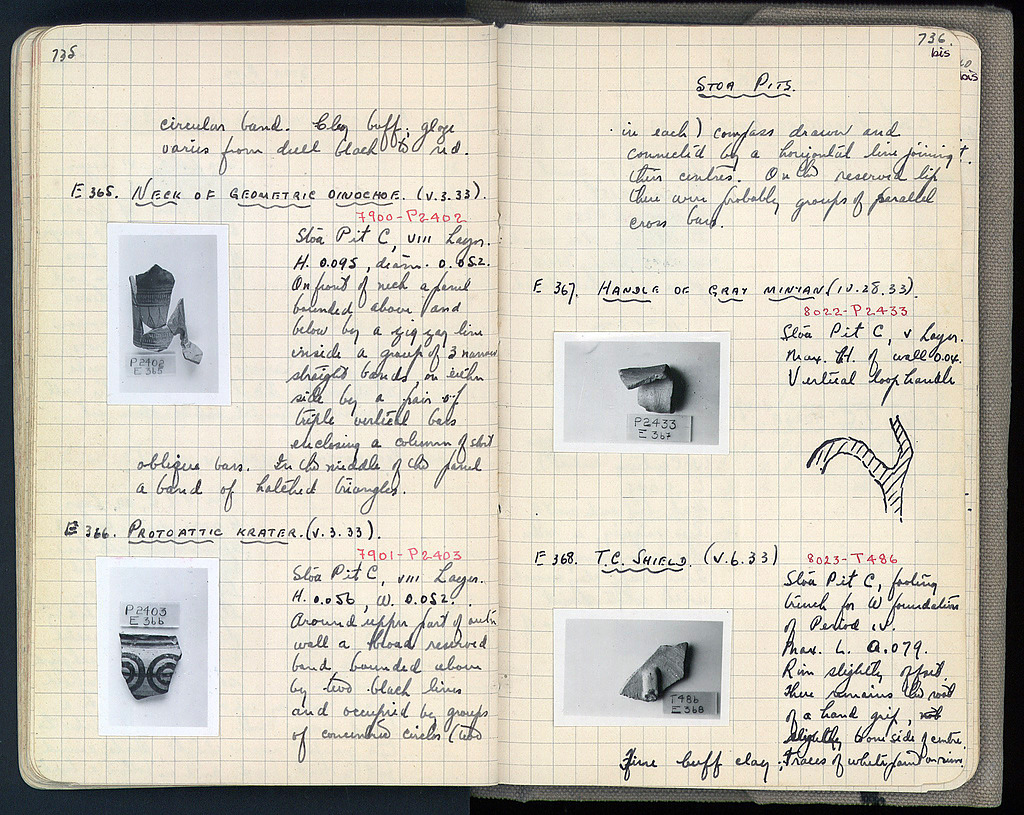 735
circular band. Clay buff; glaze
varies from dull black to red.
E 365. NECK OF GEOMETRIC OINOCHOE. (V.3.33).
7900-P2402
Stoa Pit C, VIII Layer.
H. 0.095, diam. 0.052.
On front of neck a panel
bounded above and
below by a zigzag line
inside a group of 3 narrow
straight bands, on either
side by a pair of
triple vertical bars
enclosing a column of short
oblique bars. In the middle of the panel
a band of hatched triangles.
P2402
E 365
E 366. PROTOATTIC KRATER. (V.3.33).
7901-P2403
Stoa Pit C, VIII Layer.
H. 0.056, W. 0.052.
Around upper part of outer
wall a broad reserved
band bounded above
by two black lines
and occupied by groups
of concentric circles (two
P2403
E 366
736
bis
bis
STOA PITS.
in each) compass drawn and
connected by a horizontal line joining
their centres. On the reserved lip
there were probably groups of parallel
cross bars.
E 367. HANDLE OF GRAY MINYAN. (IV.28.33).
8022-P2433
Stoa Pit C, V Layer.
Max. H. of wall 0.04.
Vertical loop handle
P2433
E 367
E 368. T.C. SHIELD. (V.6.33)
8023-T486
Stoa Pit C, footing
trench for W foundation
of Period IV.
Max. L. 0.079.
Rim slightly offset.
There remains the root
of a hand grip,
slightly to one side of centre.
Fine buff clay; Traces of white paint on rim.
T486
E 368